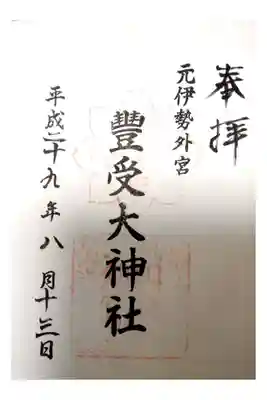 奉拝
元伊勢外宮
豐受大神社
平成二十九年八月十三日